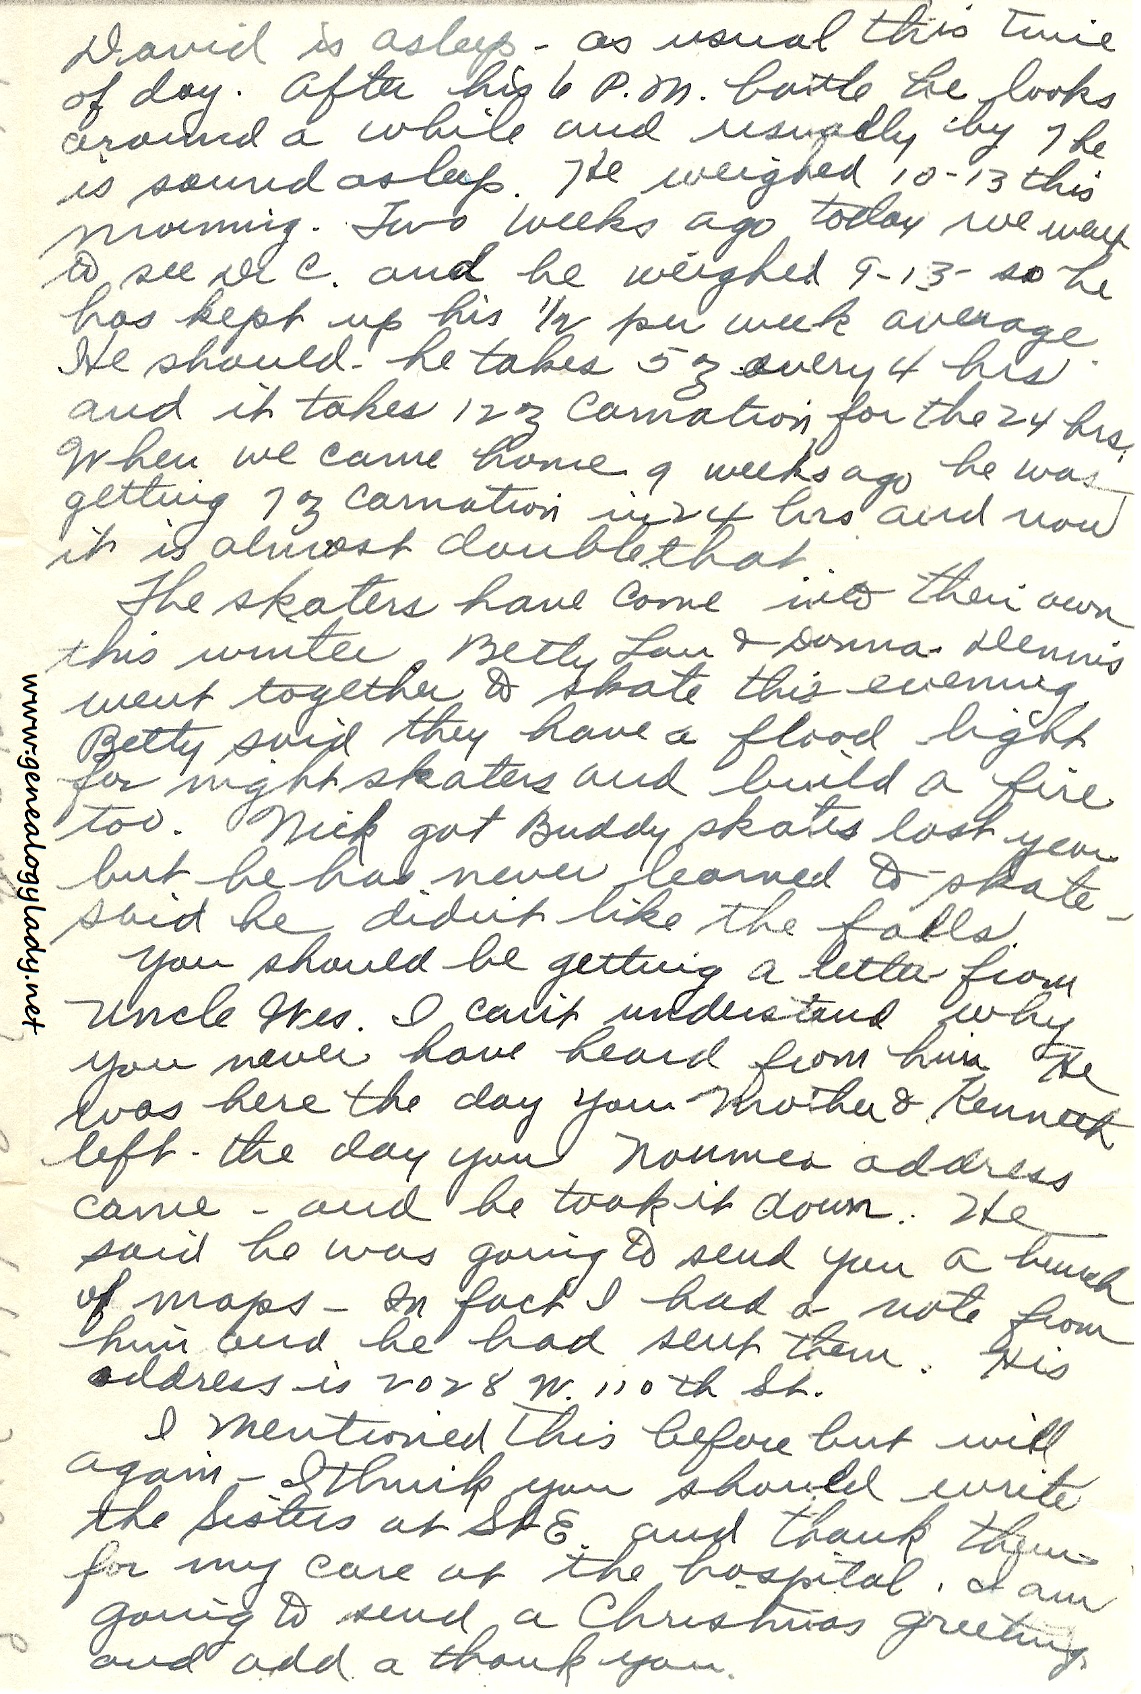 David is asleep - as usual this time
of day. After his 6 P.M. bottle he looks
around a while and usually by 7 he
is sound asleep. He weighed 10-13 this
morning. Two weeks ago today we went
to see Dr C. and he weighed 9-13 - so he
has kept up his 1/2 per week average.
He should - he takes 5 ℥ every 4 hrs
and it takes 12 ℥ Carnation for the 24 hrs.
When we came home 9 weeks ago he was
getting 7 ℥ Carnation in 24 hrs and now
it is almost double that.
The skaters have come into their own
this winter. Betty Lou & Donna Dennis
went together to skate this evening
Betty said they have a flood light
for night skaters and build a fire
too. Nick got Buddy skates last year
but he has never learned to skate -
said he didn't like the falls.
You should be getting a letter from
Uncle Wes. I can't understand why
you never have heard from him. He
was here the day your Mother & Kenneth
left - the day your Noumea address
came - and he took it down. He
said he was going to send you a bunch
of maps - In fact I had a note from
him and he had sent them. His
address is 2028 W. 110th St.
I mentioned this before but will
again - I think you should write
the Sisters at St E. and thank them
for my care at the hospital. I am
going to send a Christmas greeting
and add a thank you.
www.genealogylady.net